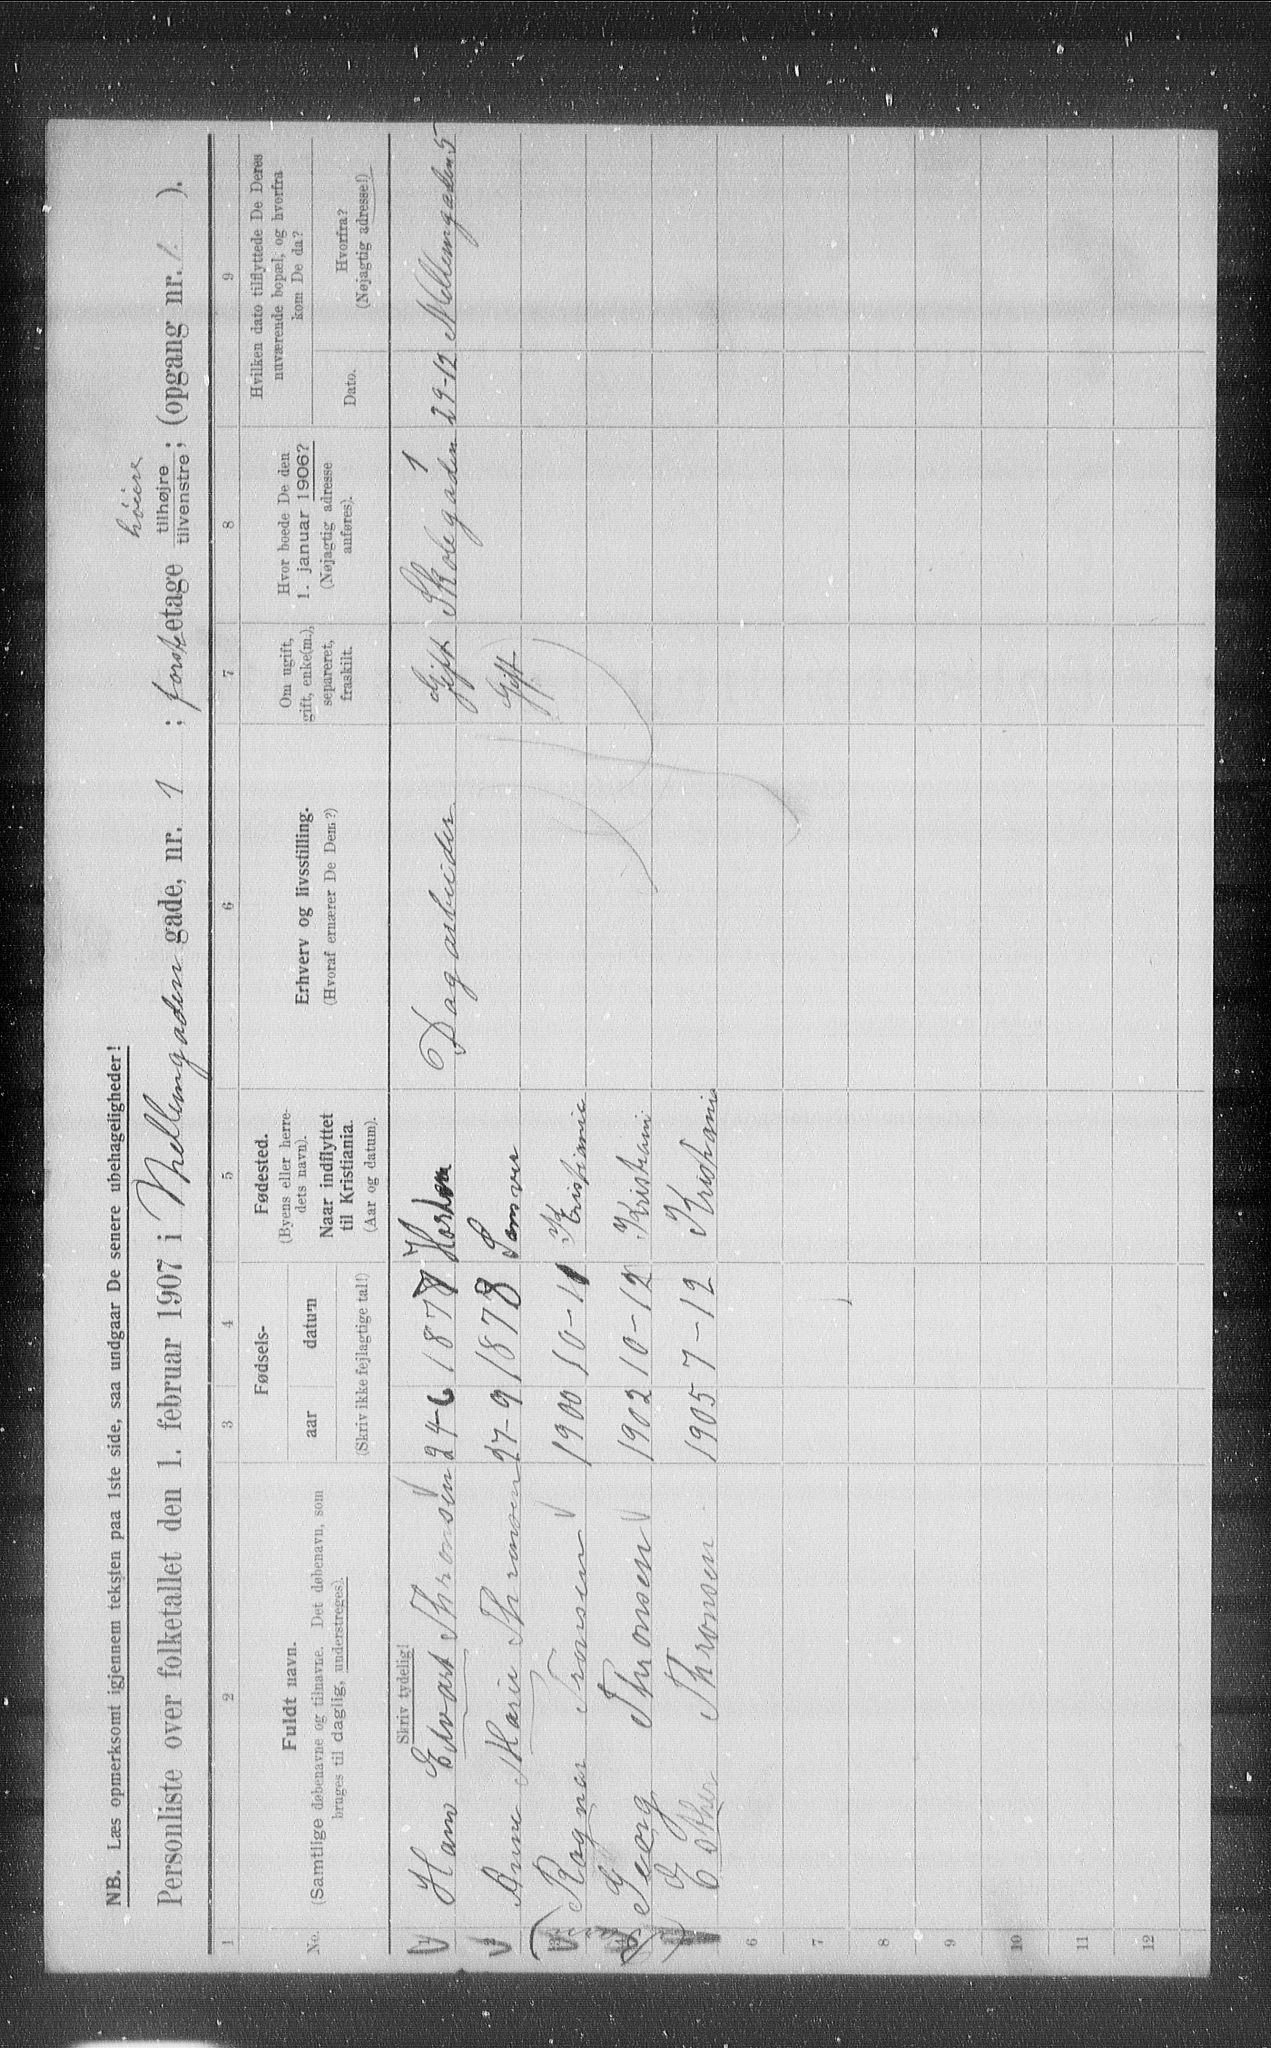 NB. Læs opmerksomt igjennem teksten paa 1ste side, saa undgaar De senere ubehageligheder!
Personliste over folketallet den 1. februar 1907 i Mellemgaden gade, nr. 1 ; første etage høire tilhøjre tilvenstre ; (opgang nr. 1. ).
1 2 3 4 5 6 7 8 9
No.
Fuldt navn.
(Samtlige døbenavne og tilnavne. Det døbenavn, som
bruges til daglig, understreges).
Skriv tydelig!
Fødsels-
aar datum
(Skriv ikke fejlagtige tal!)
Fødested.
(Byens eller herre-
dets navn).
Naar indflyttet
til Kristiania.
(Aar og datum).
Erhverv og livsstilling.
(Hvoraf ernærer De Dem?)
Om ugift,
gift, enke(m.),
separeret,
fraskilt.
Hvor boede De den
1. januar 1906?
(Nøjagtig adresse
anføres).
Hvilken dato tilflyttede De Deres
nuværende bopæl, og hvorfra
kom De da?
Dato.
Hvorfra?
(Nøjagtig adresse!)
1 Hans Edvart Thronsen 24-6 1877 Dagarbeider Gift Skolegaden 1 29-12 Mellemgaden 5
2 Anne Marie Thronsen 27-9 1878 Gift
3 Ragnar Tronsen 1900 10-11 Kristiania
4 Georg Thronsen 1902 10-12 Kristiani
5 Esther Thronsen 1905 7-12 Kristiani
6
7
8
9
10
11
12